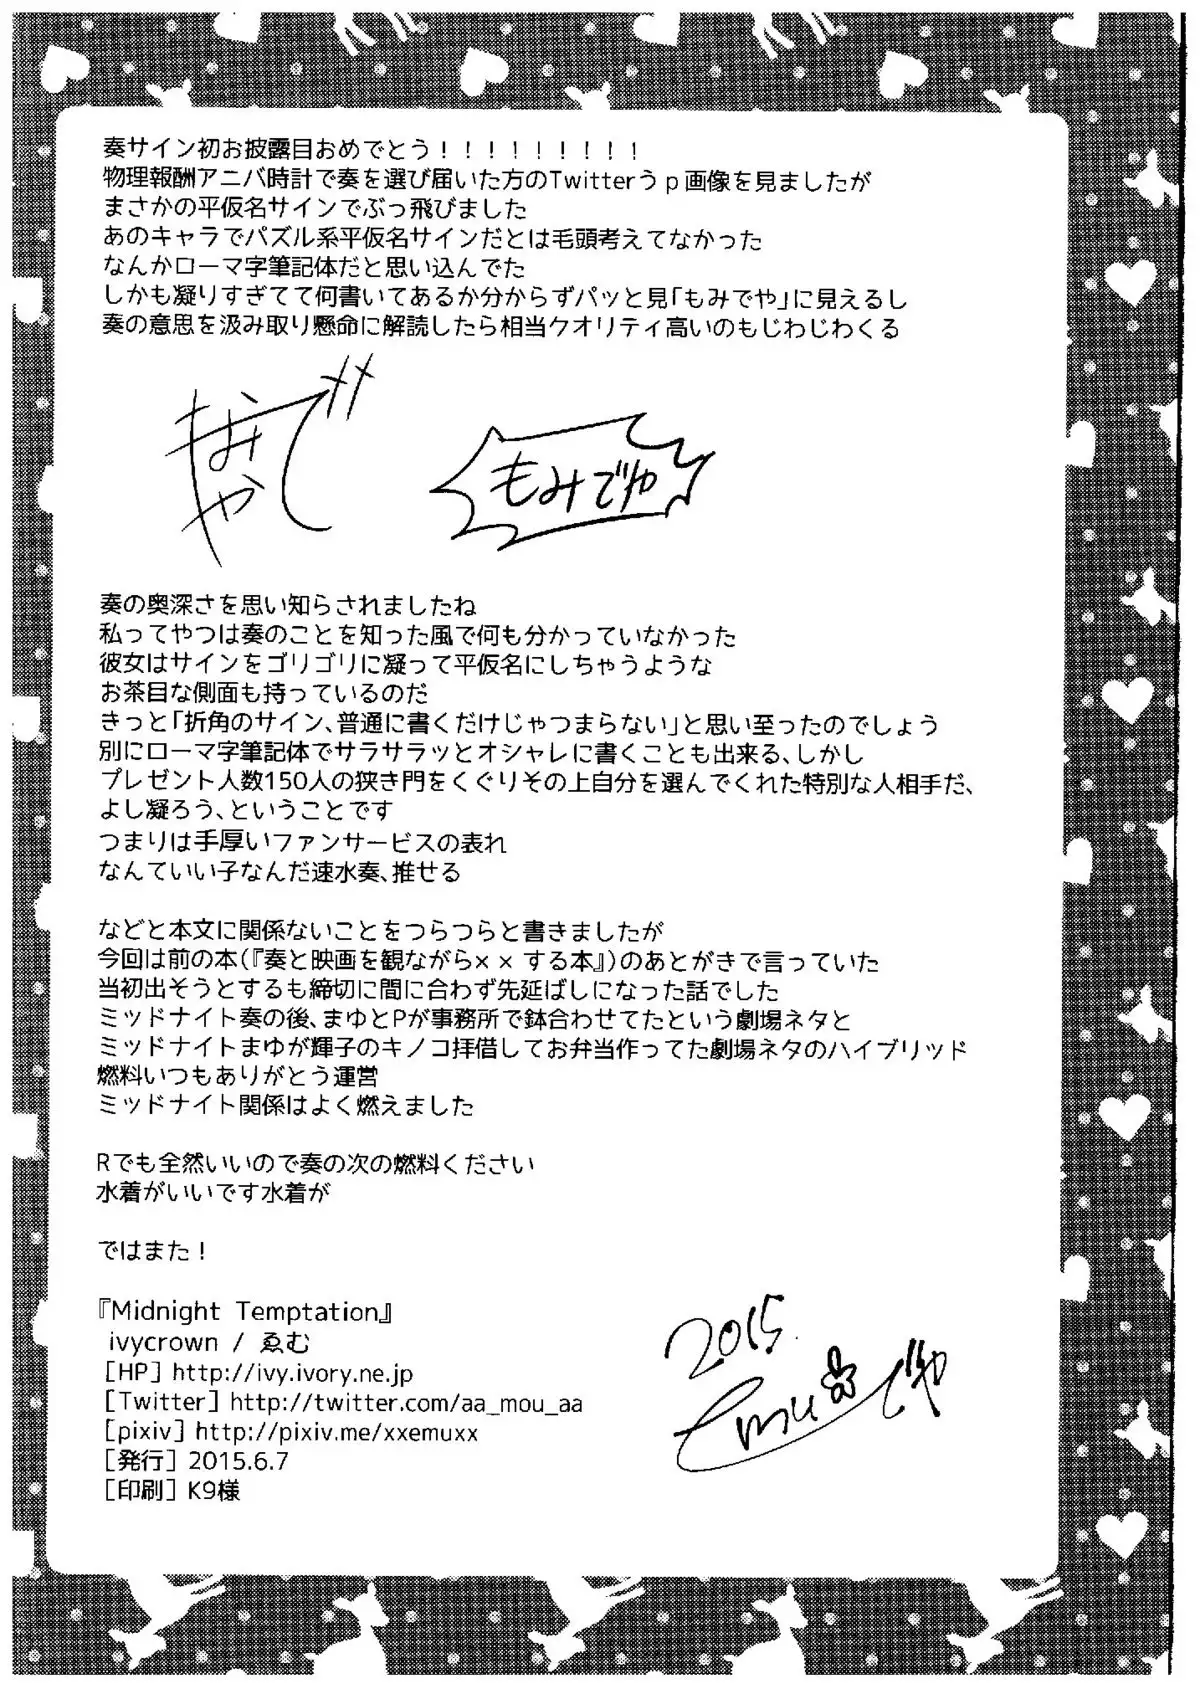 奏サイン初お披露目おめでとう！！！！！！！！！
物理報酬アニバ時計で奏を選び届いた方のTwitterうｐ画像を見ましたが
まさかの平仮名サインでぶっ飛びました
あのキャラでパズル系平仮名サインだとは毛頭考えてなかった
なんかローマ字筆記体だと思い込んでた
しかも凝りすぎてて何書いてあるか分からずパッと見「もみでや」に見えるし
奏の意思を汲み取り懸命に解読したら相当クオリティ高いのもじわじわくる
もみでや
奏の奥深さを思い知らされましたね
私ってやつは奏のことを知った風で何も分かっていなかった
彼女はサインをゴリゴリに凝って平仮名にしちゃうような
お茶目な側面も持っているのだ
きっと「折角のサイン、普通に書くだけじゃつまらない」と思い至ったのでしょう
別にローマ字筆記体でサラサラッとオシャレに書くことも出来る、しかし
プレゼント人数150人の狭き門をくぐりその上自分を選んでくれた特別な人相手だ、
よし凝ろう、ということです
つまりは手厚いファンサービスの表れ
なんていい子なんだ速水奏、推せる
などと本文に関係ないことをつらつらと書きましたが
今回は前の本(『奏と映画を観ながら××する本』)のあとがきで言っていた
当初出そうとするも締切に間に合わず先延ばしになった話でした
ミッドナイト奏の後、まゆとPが事務所で鉢合わせてたという劇場ネタと
ミッドナイトまゆが輝子のキノコ拝借してお弁当作ってた劇場ネタのハイブリッド
燃料いつもありがとう運営
ミッドナイト関係はよく燃えました
Rでも全然いいので奏の次の燃料ください
水着がいいです水着が
ではまた！
『Midnight Temptation』
ivycrown / ゑむ
[HP] http://ivy.ivory.ne.jp
[Twitter] http://twitter.com/aa_mou_aa
[pixiv] http://pixiv.me/xxemuxx
[発行] 2015.6.7
[印刷] K9様
2015
Emu